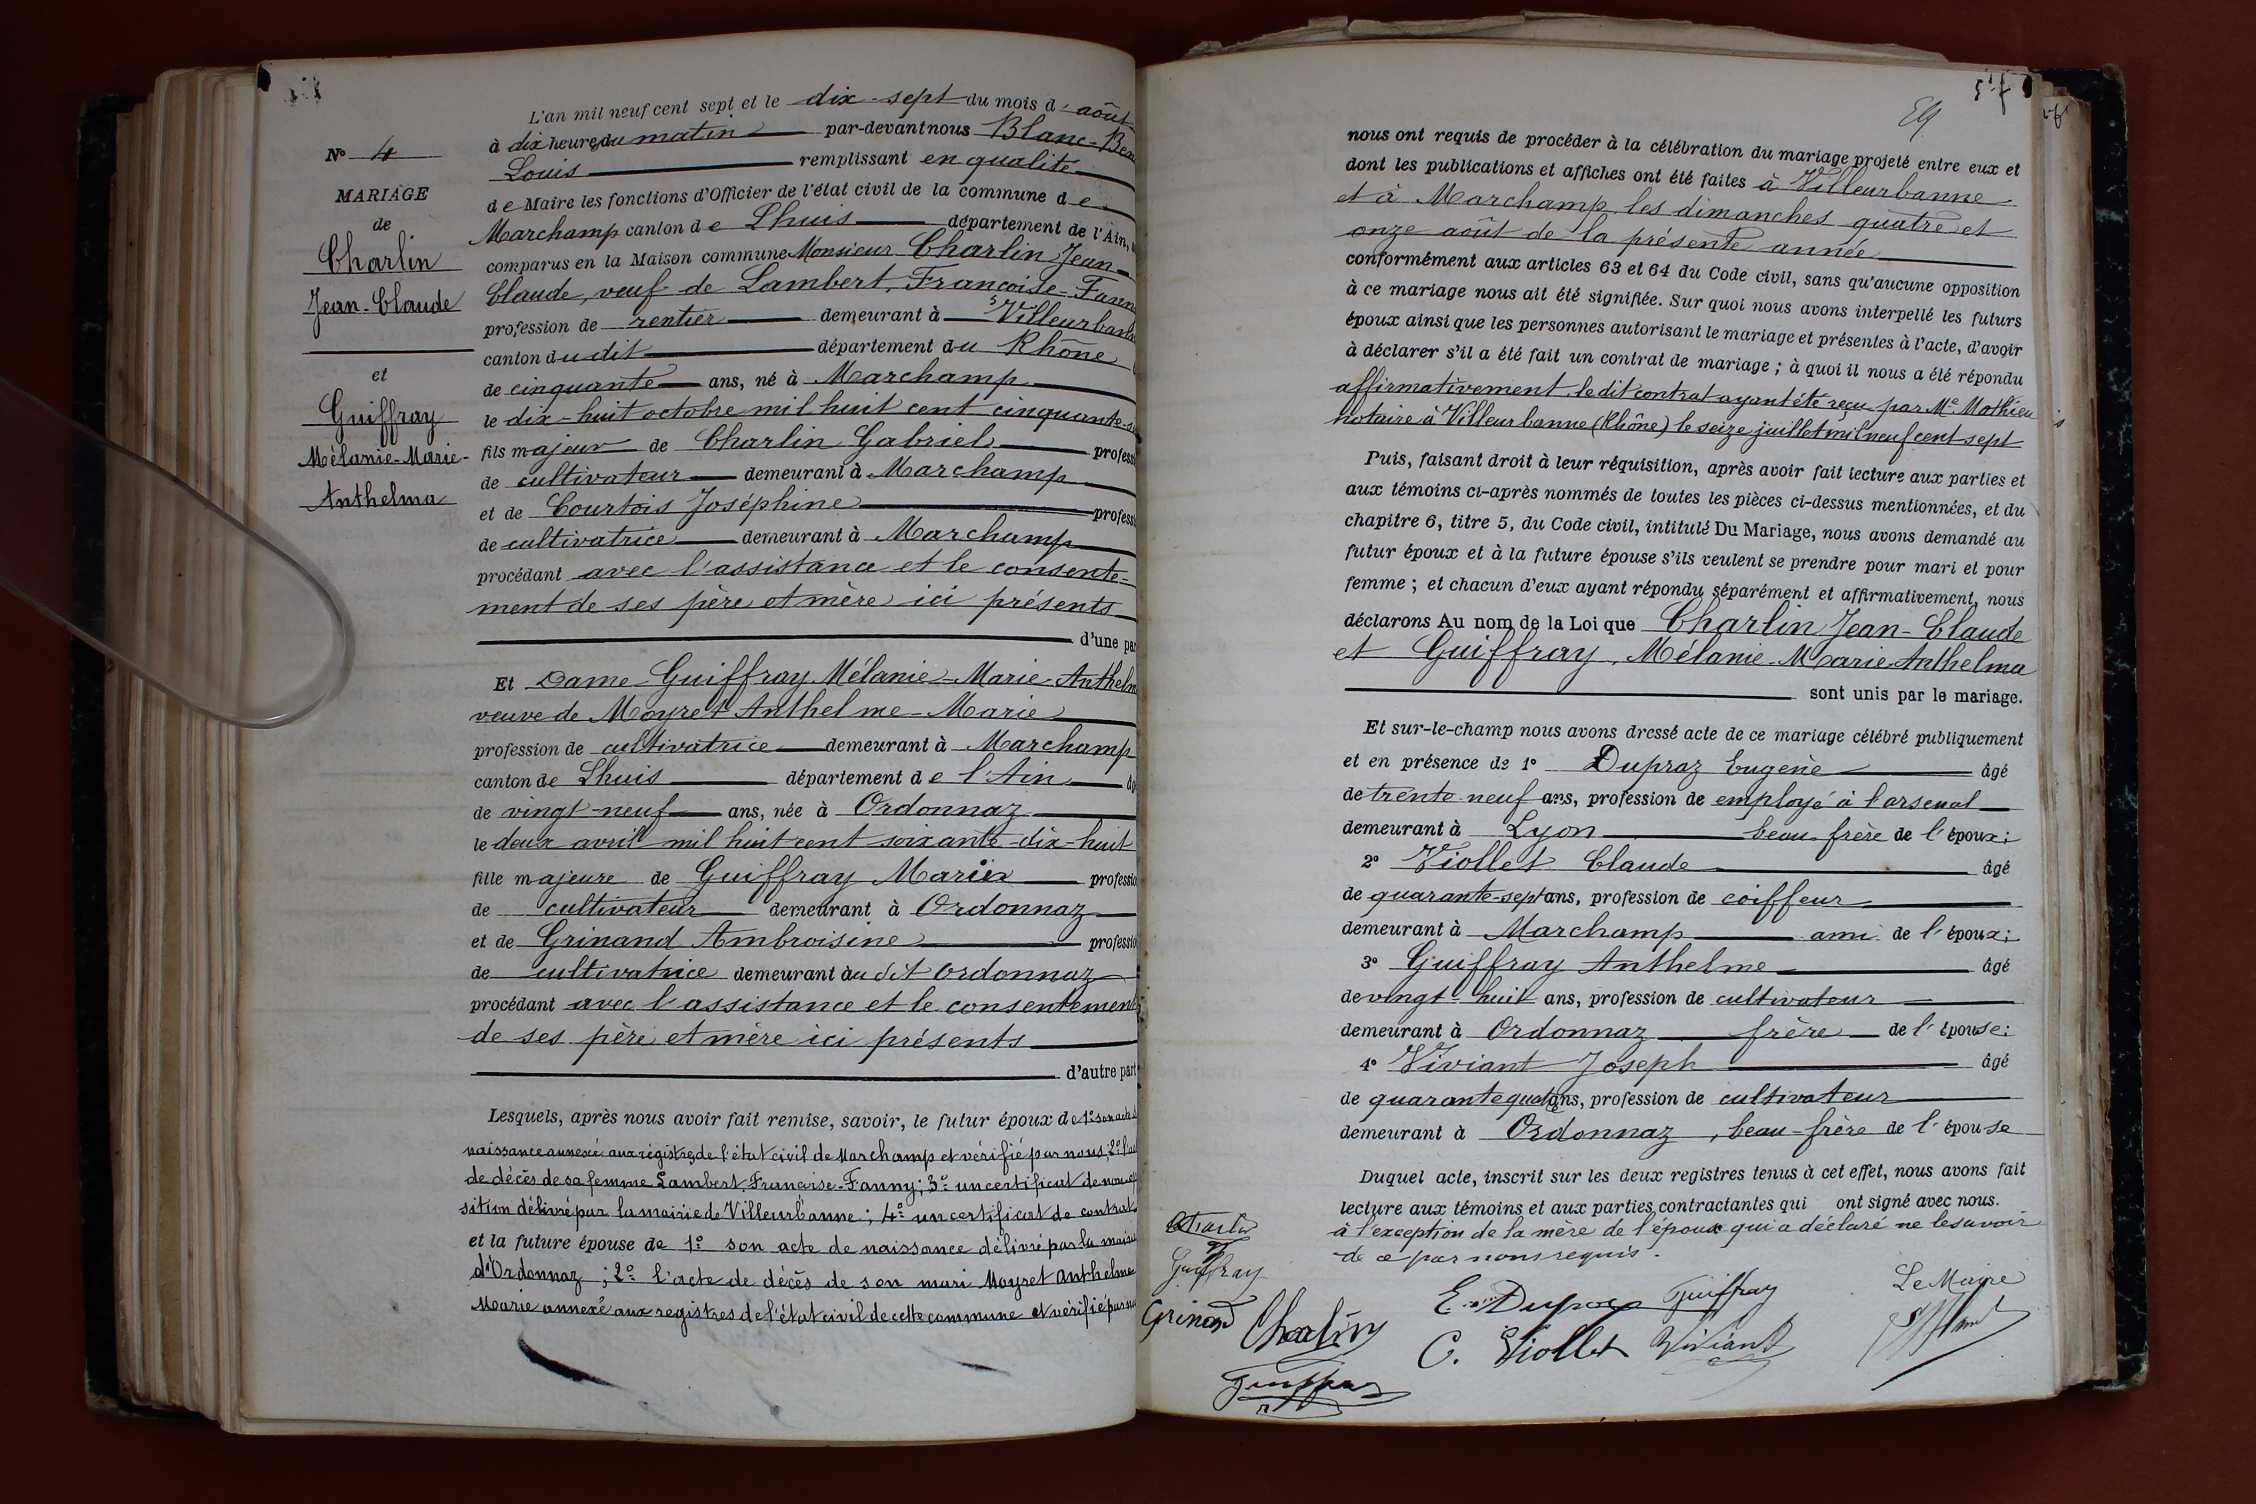 N° 4
MARIAGE
de
Charlin
Jean-Claude
et
Guiffray
Mélanie-Marie-
Anthelma
L'an mil neuf cent sept et le dix-sept du mois d'août
à dix heures du matin par-devant nous Blanc-Ben
Louis remplissant en qualité
de Maire les fonctions d'Officier de l'état civil de la commune de
Marchamp canton de Lhuis département de l'Ain,
comparus en la Maison commune Monsieur Charlin Jean-
Claude, veuf de Lambert, Françoise-Fann
profession de rentier demeurant à Villeurban
canton dudit département du Rhône
de cinquante ans, né à Marchamp
le dix-huit octobre mil huit cent cinquante-s
fils majeur de Charlin Gabriel professi
de cultivateur demeurant à Marchamp
et de Courtois Joséphine professi
de cultivatrice demeurant à Marchamp
procédant avec l'assistance et le consente-
ment de ses père et mère ici présents
d'une par
Et Dame Guiffray Mélanie-Marie-Anthelm
veuve de Moyret Anthelme-Marie
profession de cultivatrice demeurant à Marchamp
canton de Lhuis département de l'Ain âg
de vingt-neuf ans, née à Ordonnaz
le deux avril mil huit cent soixante-dix-huit
fille majeure de Guiffray Marin professio
de cultivateur demeurant à Ordonnaz
et de Grinand Ambroisine professio
de cultivatrice demeurant au dit Ordonnaz
procédant avec l'assistance et le consentement
de ses père et mère ici présents
d'autre part
Lesquels, après nous avoir fait remise, savoir, le futur époux de 1° son acte d
naissance annexé aux registres de l'état civil de Marchamp et vérifié par nous; 2° l'act
de décès de sa femme Lambert, Françoise-Fanny; 3° un certificat de non op
sition délivré par la mairie de Villeurbanne; 4° un certificat de contrat
et la future épouse de 1° son acte de naissance délivré par la mairie
d'Ordonnaz; 2° l'acte de décès de son mari Moyret Anthelme
Marie annexé aux registres de l'état civil de cette commune et vérifié par no
nous ont requis de procéder à la célébration du mariage projeté entre eux et
dont les publications et affiches ont été faites à Villeurbanne
et à Marchamp les dimanches quatre et
onze août de la présente année
conformément aux articles 63 et 64 du Code civil, sans qu'aucune opposition
à ce mariage nous ait été signifiée. Sur quoi nous avons interpellé les futurs
époux ainsi que les personnes autorisant le mariage et présentes à l'acte, d'avoir
à déclarer s'il a été fait un contrat de mariage; à quoi il nous a été répondu
affirmativement, le dit contrat ayant été reçu par Me Mathieu
notaire à Villeurbanne (Rhône) le seize juillet mil neuf cent sept
Puis, faisant droit à leur réquisition, après avoir fait lecture aux parties et
aux témoins ci-après nommés de toutes les pièces ci-dessus mentionnées, et du
chapitre 6, titre 5, du Code civil, intitulé Du Mariage, nous avons demandé au
futur époux et à la future épouse s'ils veulent se prendre pour mari et pour
femme; et chacun d'eux ayant répondu séparément et affirmativement, nous
déclarons Au nom de la Loi que Charlin Jean-Claude
et Guiffray, Mélanie-Marie-Anthelma
sont unis par le mariage.
Et sur-le-champ nous avons dressé acte de ce mariage célébré publiquement
et en présence de 1° Dupraz Eugène âgé
de trente neuf ans, profession de employé à l'arsenal
demeurant à Lyon beau-frère de l'époux;
2° Viollet Claude âgé
de quarante-sept ans, profession de coiffeur
demeurant à Marchamp ami de l'époux;
3° Guiffray Anthelme âgé
de vingt-huit ans, profession de cultivateur
demeurant à Ordonnaz frère de l'épouse;
4° Viviant Joseph âgé
de quarante quatre ans, profession de cultivateur
demeurant à Ordonnaz, beau-frère de l'épouse
Duquel acte, inscrit sur les deux registres tenus à cet effet, nous avons fait
lecture aux témoins et aux parties contractantes qui ont signé avec nous.
à l'exception de la mère de l'époux qui a déclaré ne le savoir
de ce par nous requis.
Charlin
Guiffray
Grinand
Charlin
Guiffray
E. Dupraz Guiffray
C. Viollet Viviant
Le Maire